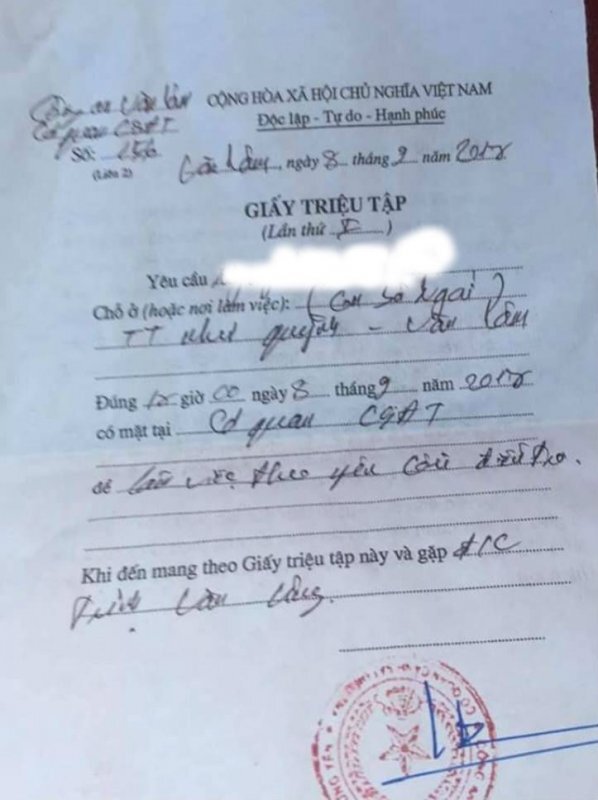 Công an Văn Lâm
Cơ quan CSĐT
CỘNG HÒA XÃ HỘI CHỦ NGHĨA VIỆT NAM
Độc lập - Tự do - Hạnh phúc
Số: 156
(Liên 2)
Văn Lâm, ngày 8 tháng 9 năm 2018
GIẤY TRIỆU TẬP
(Lần thứ I)
Yêu cầu
Chỗ ở (hoặc nơi làm việc): (Con
TT Như Quỳnh - Văn Lâm
Đúng giờ 00 ngày 8 tháng 9 năm 2018
có mặt tại Cơ quan CSĐT
để làm việc theo yêu cầu điều tra.
Khi đến mang theo Giấy triệu tập này và gặp đ/c